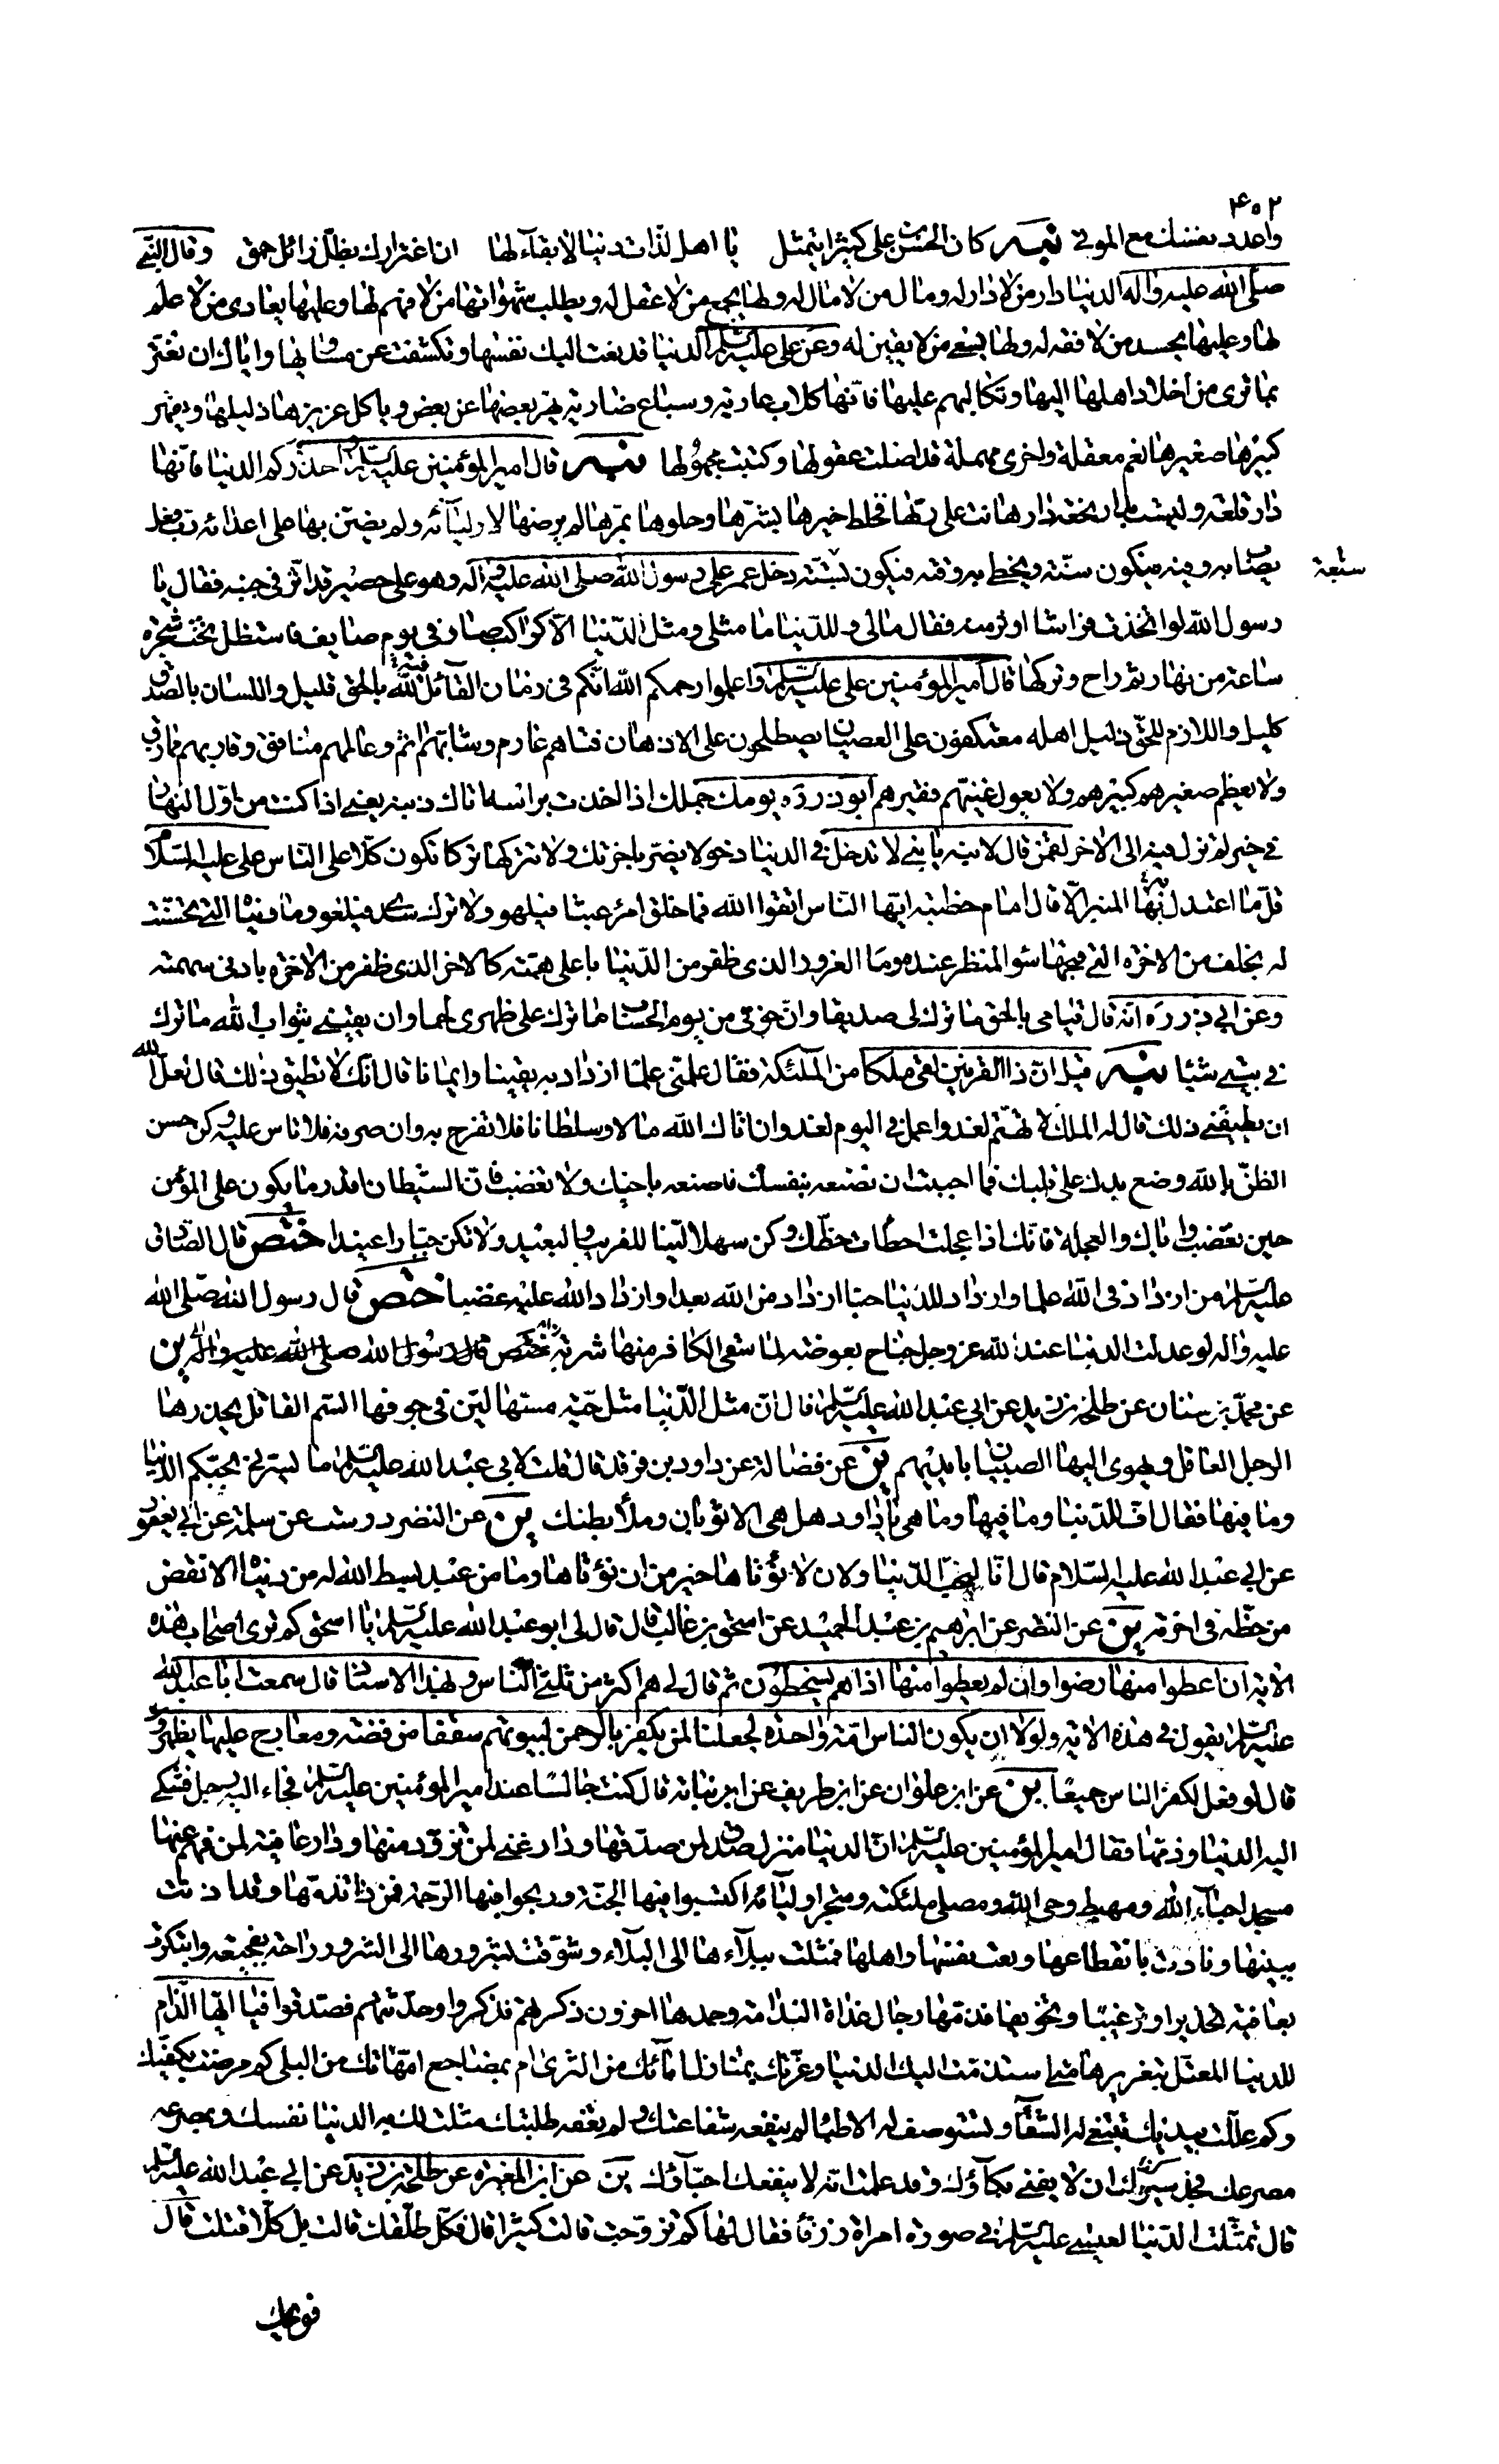 ۴۰۲
واعدد نفسك مع الموتى نبيه كان الحسن بن علي كثيرا يتمثل يا اهل لذات دنيا لا بقاء لها ان اغترارا بظل زائل حمق وقال النبي
صلى الله عليه واله الدنيا دار من لا دار له ومال من لا مال له ولها يجمع من لا عقل له ويطلب شهواتها من لا فهم لها وعليها يعادى من لا علم
لها وعليها يحسد من لا فقه له ولها يسعى من لا يقين له وعن علي عليه السلم الدنيا قد نعت اليك نفسها وتكشفت عن مساويها واياك ان تغتر
بما ترى من اخلاد اهلها اليها وتكالبهم عليها فانها كلاب عاوية وسباع ضارية يهر بعضها عن بعض وياكل عزيزها ذليلها ويقهر
كبيرها صغيرها نعم معقلة واخرى مهملة قد اضلت عقولها وركبت مجهولها نبيه قال امير المؤمنين عليه السلم احذركم الدنيا فانها
دار قلعة وليست بدار نجعة دار هانت على ربها فخلط خيرها بشرها وحلوها بمرها لم يرضها لاوليائه ولم يضن بها على اعدائه رب فعل
يصاب به وقته فيكون سنة ويخطى به وقته فيكون سبة دخل عمر على رسول الله صلى الله عليه وآله وهو على حصير قد اثر في جنبه فقال يا
سبعة
رسول الله لو اتخذت فراشا اوثر منه فقال مالي وللدنيا ما مثلي ومثل الدنيا الا كراكب صار في يوم صايف فاستظل تحت شجرة
ساعة من نهار ثم راح وتركها قال امير المؤمنين علي عليه السلم واعلموا رحمكم الله انكم في زمان القائل فيه بالحق قليل واللسان بالصدق
كليل واللازم للحق ذليل اهله معتكفون على العصيان يصطلحون على الادهان فتاهم غارم وشابهم اثم وعالمهم منافق وقاربهم مماذق
ولا يعظم صغيرهم كبيرهم ولا يعول غنيهم فقيرهم ابو ذر ره يومك جملك اذا اخذت براسه اتاك ذنبه يعني اذا كنت من اول النهار
في خير لم تزل فيه الى الاخر لقمن قال لابنه يا بني لا تدخل في الدنيا دخولا يضر باخرتك ولا تتركها تركا تكون كلا على الناس علي عليه السلام
قل ما اعتدل به المنبر الا قال امام خطبته ايها الناس اتقوا الله فما خلق امرء عبثا فيلهو ولا ترك سدى فيلغو وما دنياه التي تحسنت
له بخلف من الاخرة التي قبحها سوء المنظر عنده وما المغرور الذي ظفر من الدنيا باعلى همته كالاخر الذي ظفر من الاخرة بادنى سهمته
وعن ابي ذر ره انه قال قيامي بالحق ما ترك لي صديقا وان خوفي من يوم الحساب ما ترك على ظهري لحما وان يقيني بثواب الله ما ترك
في بيتي شيئا نبيه قيل ان ذا القرنين لقي ملكا من الملئكة فقال علمني علما ازداد به يقينا وايمانا قال انك لا تطيق ذلك قال لعل الله
ان يطيقني ذلك قال له الملك لا تهتم لغد واعمل في اليوم لغد وان اتاك الله مالا وسلطانا فلا تفرح به وان صرفه فلا تاس عليه وكن حسن
الظن بالله وضع يدك على قلبك فما احببت ان تصنعه بنفسك فاصنعه باخيك ولا تغضب فان الشيطان اقدر ما يكون على المؤمن
حين يغضب واياك والعجلة فانك اذا عجلت اخطات حظك وكن سهلا لينا للقريب والبعيد ولا تكن جبارا عنيدا ختص قال الصادق
عليه السلم من ازداد في الله علما وازداد للدنيا حبا ازداد من الله بعدا وازداد الله عليه غضبا ختص قال رسول الله صلى الله
عليه واله لو عدلت الدنيا عند الله عز وجل جناح بعوضة لما سقى الكافر منها شربة ختص قال رسول الله صلى الله عليه واله ين
عن محمد بن سنان عن طلحة بن زيد عن ابي عبد الله عليه السلم قال ان مثل الدنيا مثل حية مسها لين في جوفها السم القاتل يحذرها
الرجل العاقل ويهوى اليها الصبيان بايديهم ين عن فضالة عن داود بن فرقد قال قلت لابي عبد الله عليه السلم ما يسرني بحبكم الدنيا
وما فيها فقال اف للدنيا وما فيها وما هي يا داود هل هي الا ثوبان وملأ بطنك ين عن النضر عن درست عن سلمة عن ابن ابي يعفور
عن ابي عبد الله عليه السلام قال انا لنحب الدنيا ولان لا نؤتاها خير من ان نؤتاها وما من عبد بسط الله له من دنياه الا نقص
من حظه في اخرته ين عن النضر عن ابرهيم بن عبد الحميد عن اسحق بن غالب قال قال لي ابو عبد الله عليه السلم يا اسحق كم ترى اصحاب هذه
الاية ان اعطوا منها رضوا وان لم يعطوا منها اذا هم يسخطون ثم قال لي هم اكثر من ثلثي الناس وبهذا الاسناد قال سمعت ابا عبد الله
عليه السلم يقول في هذه الاية ولولا ان يكون الناس امة واحدة لجعلنا لمن يكفر بالرحمن لبيوتهم سقفا من فضة ومعارج عليها يظهرون
قال لو فعل لكفر الناس جميعا ين عن ابن علوان عن ابن طريف عن ابن نباتة قال كنت جالسا عند امير المؤمنين عليه السلم فجاء اليه رجل فشكى
اليه الدنيا وذمها فقال امير المؤمنين عليه السلم ان الدنيا منزل صدق لمن صدقها ودار غنى لمن تزود منها ودار عافية لمن فهم عنها
مسجد احباء الله ومهبط وحي الله ومصلى ملئكته ومتجر اوليائه اكتسبوا فيها الجنة وربحوا فيها الرحمة فمن ذا يذمها وقد اذنت
ببينها ونادت بانقطاعها ونعت نفسها واهلها فمثلت ببلاءها الى البلاء وشوقت بسرورها الى السرور راحت بفجيعة وابتكرت
بعافية تحذيرا وترغيبا وتخويفا فذمها رجال غداة الندامة وحمدها اخرون ذكرتهم فذكروا وحدثتهم فصدقوا فيا ايها الذام
للدنيا المعتل بتغريرها متى استذمت اليك الدنيا وغرتك بمنازل ابائك من الثرى ام بمضاجع امهاتك من البلى كم مرضت بكفيك
وكم عللت بيديك تبتغي له الشفاء وتستوصف له الاطباء لم ينفعه شفاعتك ولم تعفه طلبتك مثلت لك به الدنيا نفسك وبمصرعه
مصرعك فجدير بك ان لا يفنى بكاؤك وقد علمت انه لا ينفعك احباؤك ين عن ابن المغيرة عن طلحة بن زيد عن ابي عبد الله عليه السلم
قال تمثلت الدنيا لعيسى عليه السلم في صورة امراة زرقاء فقال لها كم تزوجت قالت كثيرا قال فكل طلقك قالت بل كلا قتلت قال
فويح